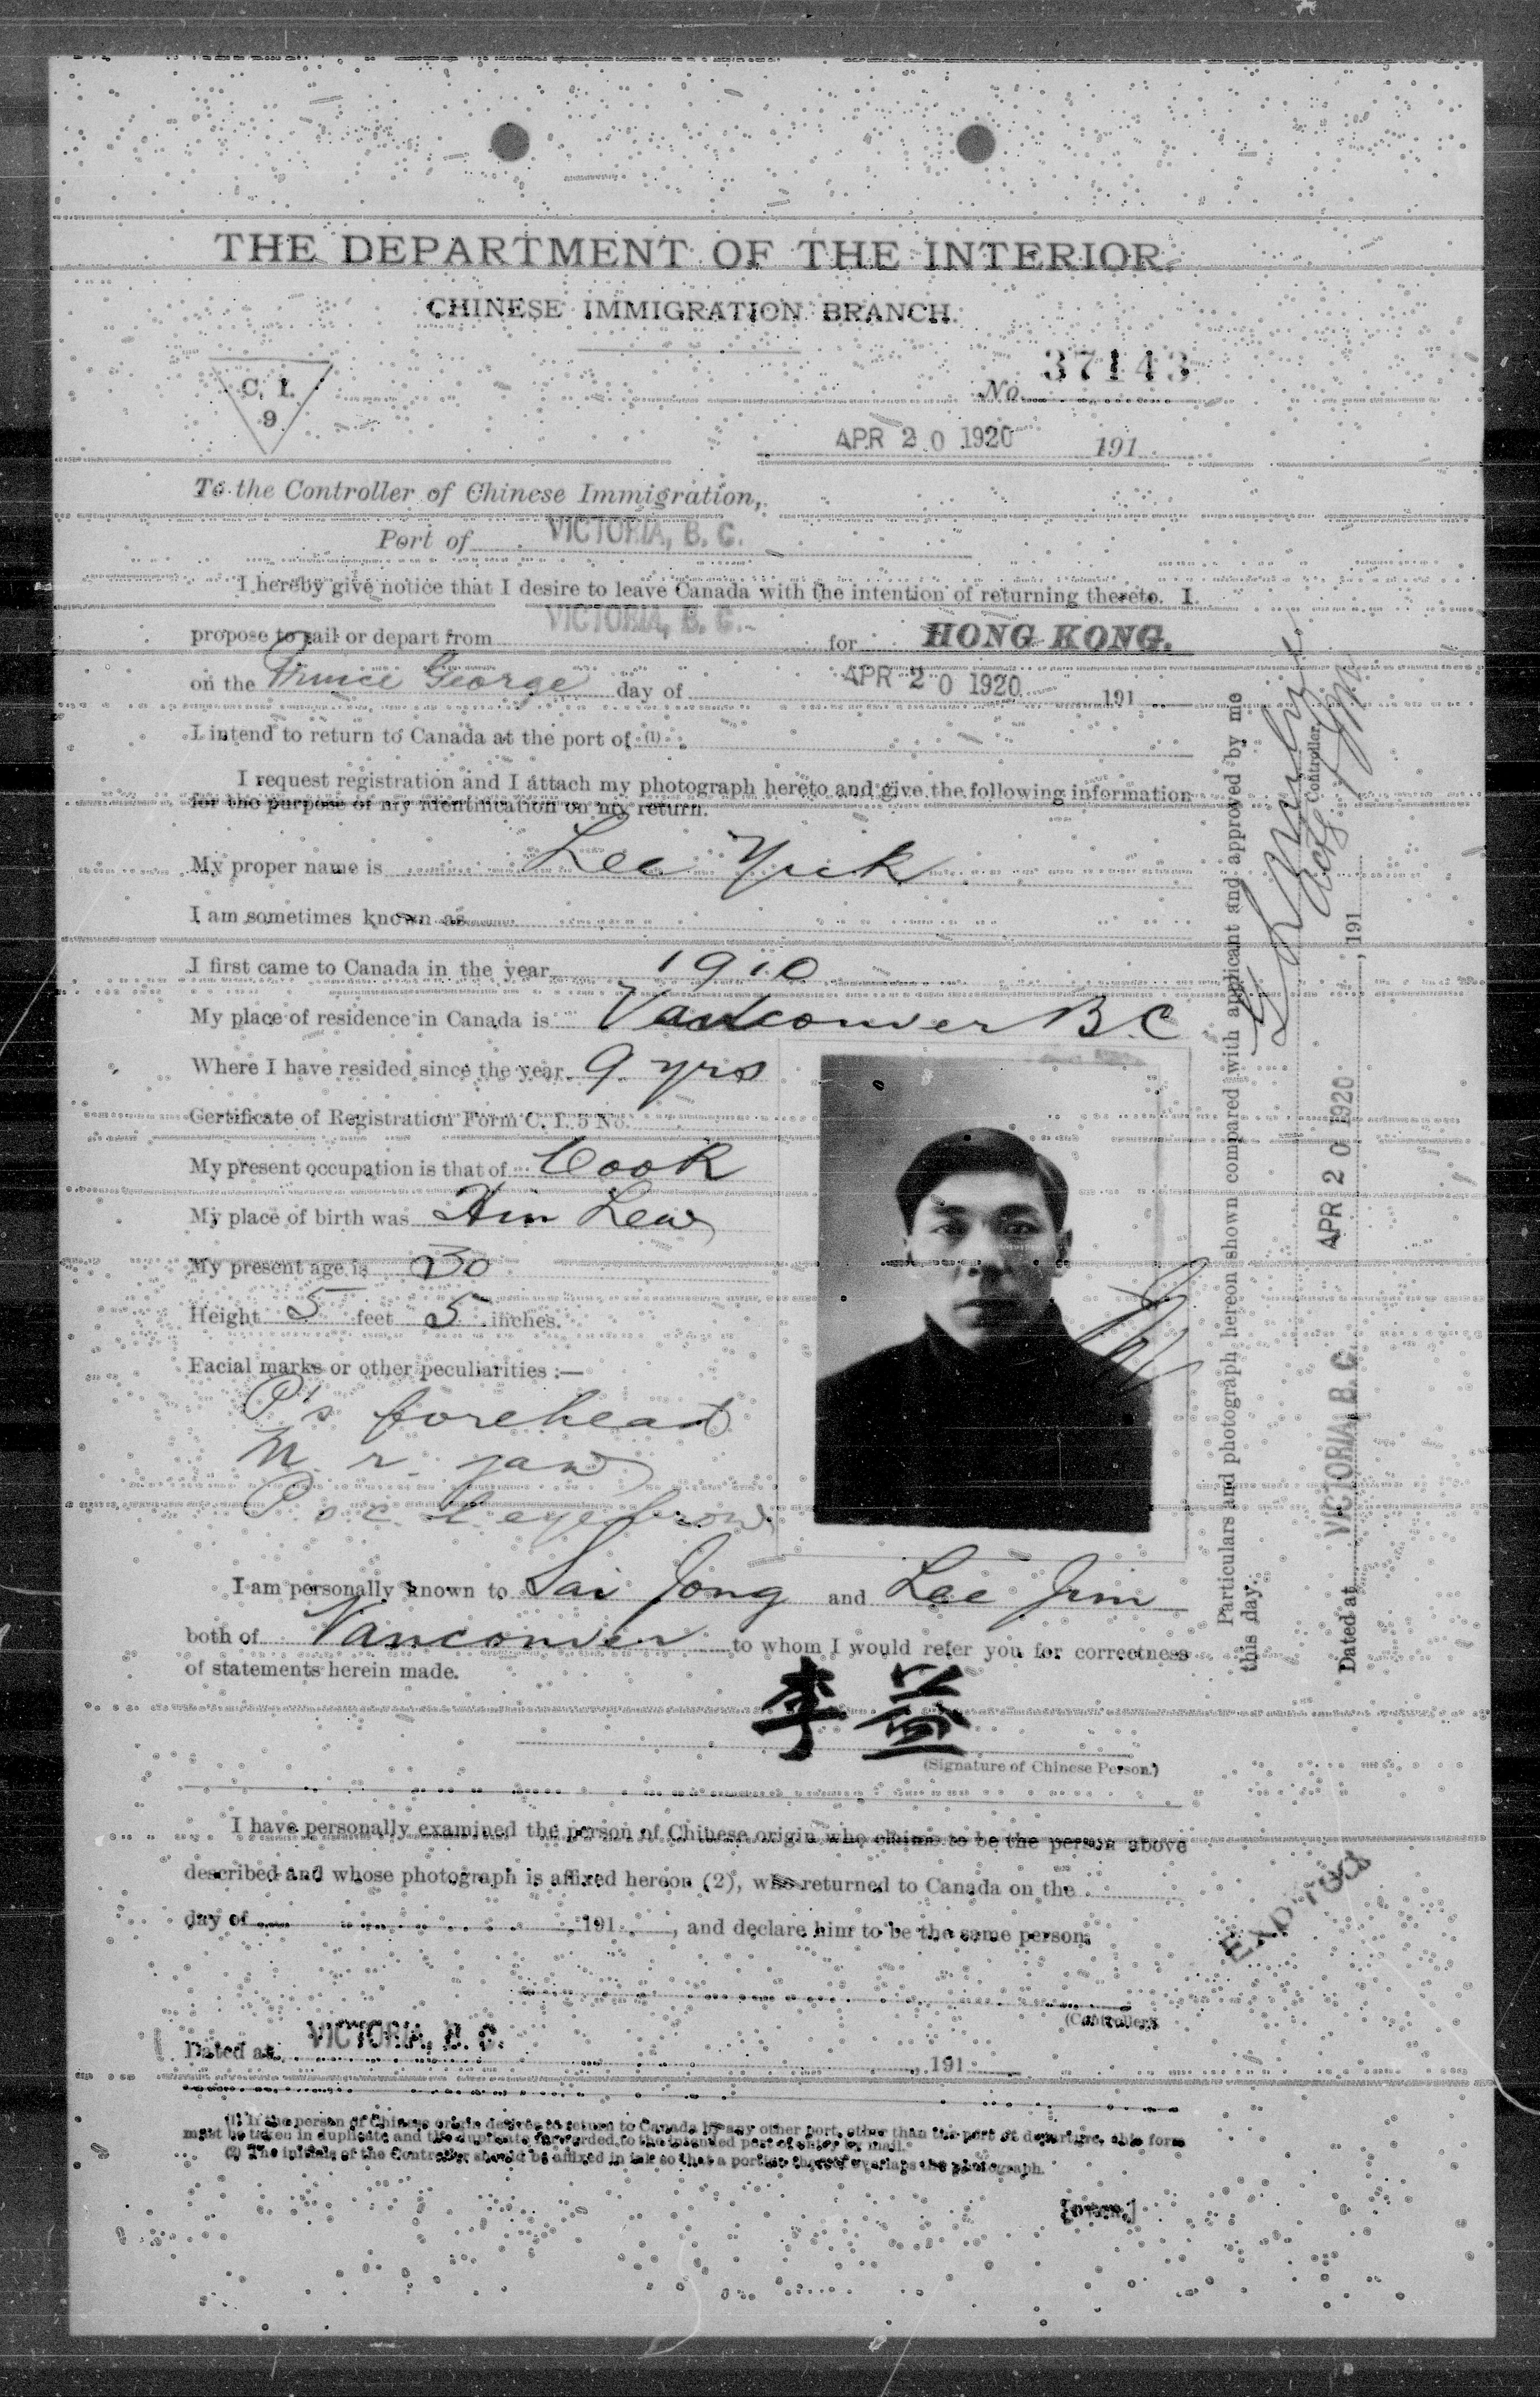 THE DEPARTMENT OF THE INTERIOR.
CHINESE IMMIGRATION BRANCH.
C. I.
9
No. 37143
APR 20 1920 191
To the Controller of Chinese Immigration,
Port of VICTORIA, B. C.
I hereby give notice that I desire to leave Canada with the intention of returning thereto. I
propose to sail or depart from VICTORIA, B. C. for HONG KONG.
on the Prince George day of APR 20 1920 191
I intend to return to Canada at the port of (1)
I request registration and I attach my photograph hereto and give the following information
for the purpose of my identification on my return.
My proper name is Lee Yick
I am sometimes known as
I first came to Canada in the year 1910
My place of residence in Canada is Vancouver B C
Where I have resided since the year 9 yrs
Certificate of Registration Form C. I. 5 No.
My present occupation is that of Cook
My place of birth was Hin Lew
My present age is 30
Height 5 feet 5 inches.
Facial marks or other peculiarities :—
P's forehead
M. r. jaw
P o c. L eyebrow
I am personally known to Sai Jong and Lee Jim
both of Vancouver to whom I would refer you for correctness
of statements herein made.
李益
(Signature of Chinese Person.)
I have personally examined the person of Chinese origin who claims to be the person above
described and whose photograph is affixed hereon (2), who returned to Canada on the
day of 191 , and declare him to be the same person.
(Controller)
Dated at VICTORIA, B. C. , 191
(1) If the person of Chinese origin desires to return to Canada by any other port, other than the port of departure, this form
must be taken in duplicate and the duplicate forwarded to the intended port of entry by mail.
(2) The initials of the Controller should be affixed in ink so that a portion thereof overlaps the photograph.
[OVER.]
Particulars and photograph hereon shown compared with applicant and approved by me
this day.
Controller
Actg
Dated at VICTORIA, B. C. APR 20 1920 , 191